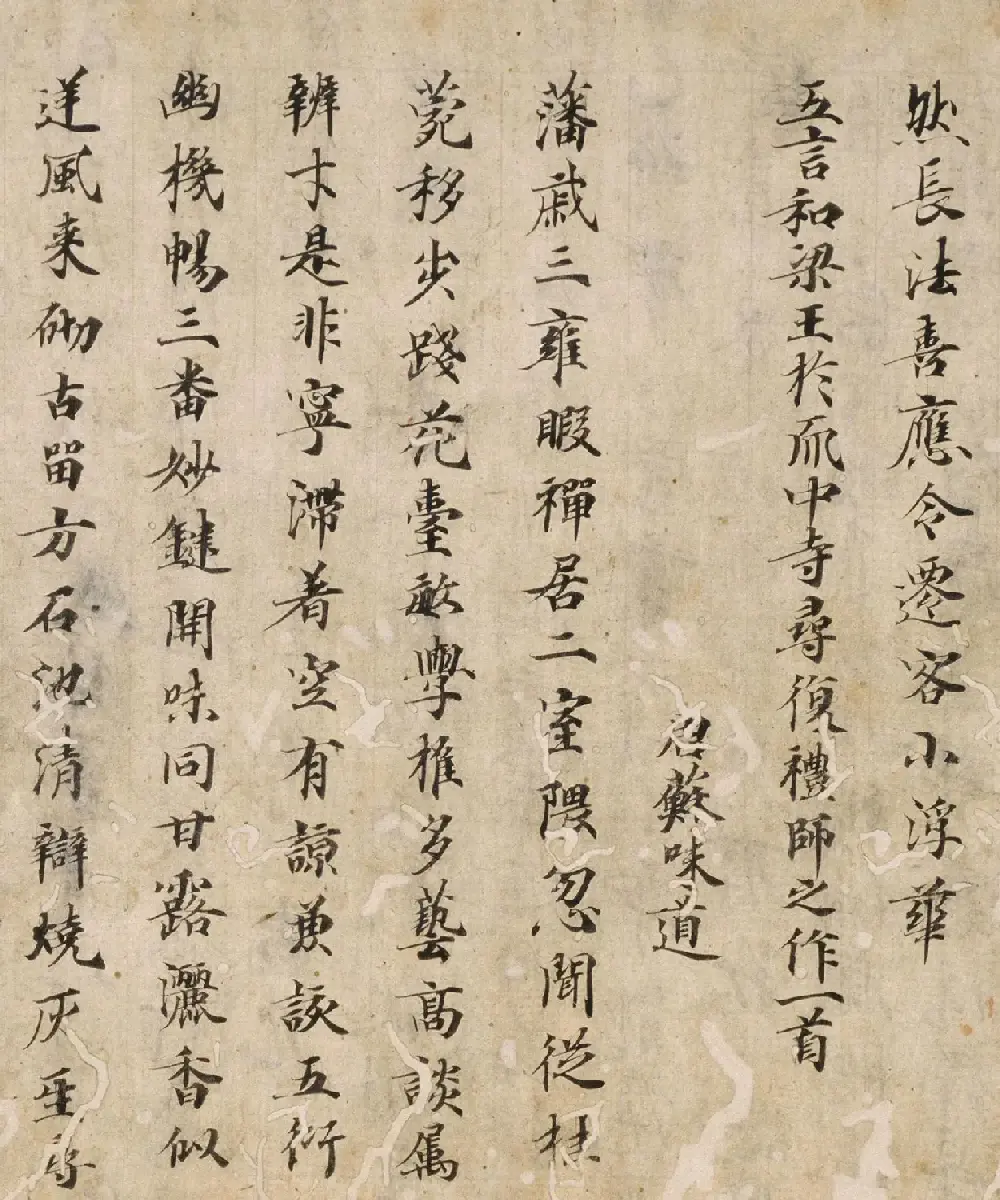 然長法喜應令遷客小浮華
五言和梁王於天中寺尋復禮師之作一首
石蘇味道
藩戚三雍暇禪居二室隈忽聞從桂
菀移步踐花臺敏學推多藝高談属
辨才是非寧滯著空有諒兼該五衍
幽機暢三番妙鍵開味同甘露灑香似
逆風来砌古留方石池清辯燒灰垂尋